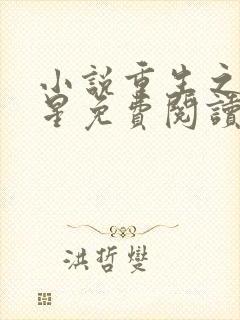 小說重生之
星免費閱讀
洪哲燮